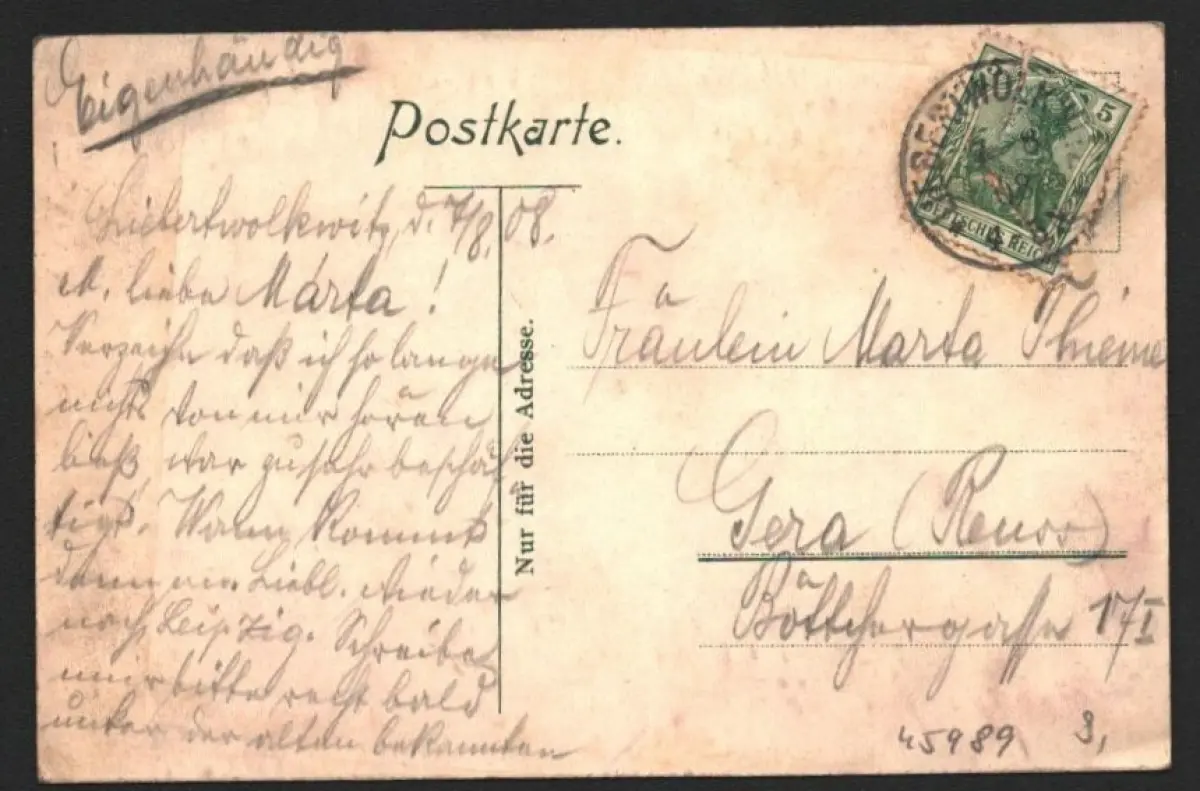 Eigenhändig
Postkarte.
5
DEUTSCHES REICH
Liebertwolkwitz, d. 7/8. 08.
M. liebe Marta!
Verzeihe daß ich so lange
nichts von mir hören
ließ, war zu sehr beschäf
tigt. Wann kommst
denn m. Liebl. wieder
nach Leipzig. Schreibe
mir bitte recht bald
unter der alten bekannten
Nur für die Adresse.
Fräulein Marta Thieme
Gera (Reuss)
Böttchergasse 17 I
45989 3,